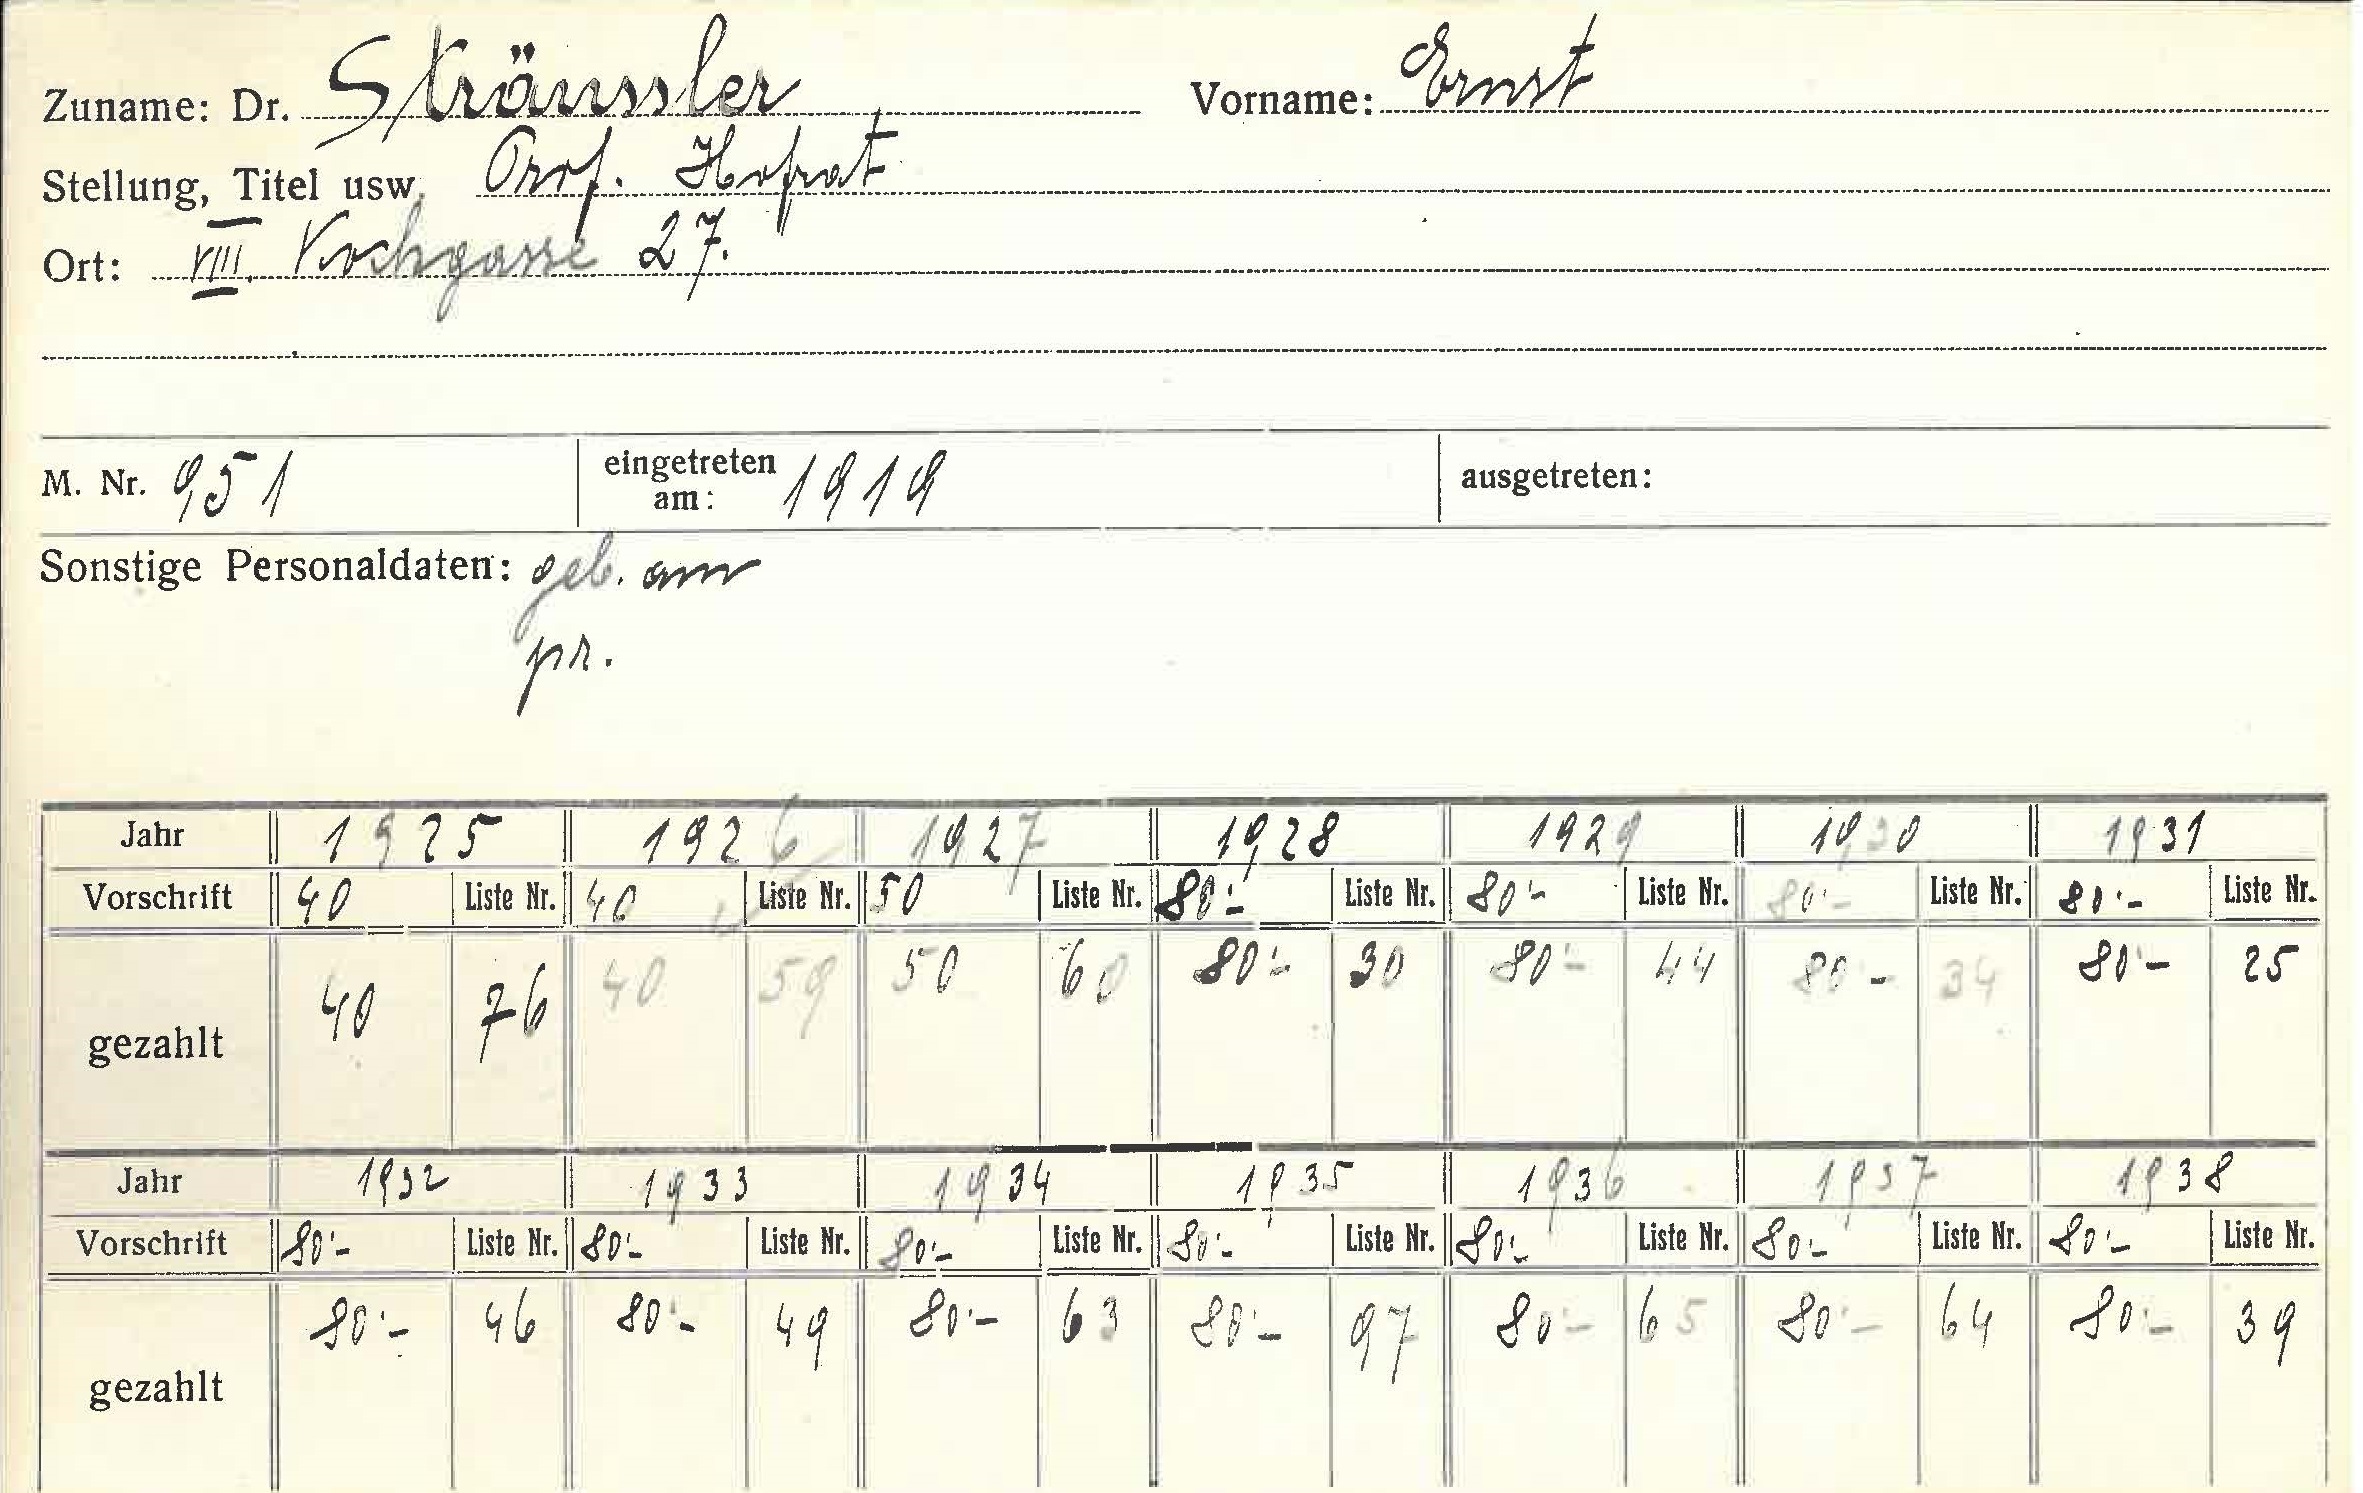 Zuname: Dr. Sträussler Vorname: Ernst
Stellung, Titel usw. Prof. Hofrat
Ort: VIII. Kochgasse 27.
M. Nr. 951 eingetreten am: 1919 ausgetreten:
Sonstige Personaldaten: geb. am
pr.
Jahr 1925 1926 1927 1928 1929 1930 1931
Vorschrift 40 Liste Nr. 40 Liste Nr. 50 Liste Nr. 80'- Liste Nr. 80'- Liste Nr. 80'- Liste Nr. 80'- Liste Nr.
gezahlt 40 76 40 59 50 60 80'- 30 80'- 44 80'- 34 80'- 25
Jahr 1932 1933 1934 1935 1936 1937 1938
Vorschrift 80'- Liste Nr. 80'- Liste Nr. 80'- Liste Nr. 80'- Liste Nr. 80'- Liste Nr. 80'- Liste Nr. 80'- Liste Nr.
gezahlt 80'- 46 80'- 49 80'- 63 80'- 97 80'- 65 80'- 64 80'- 39